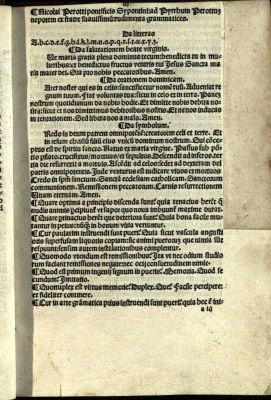 Nicolai Perotti pontificis Sypontini ad Pyrrhum Perottum
nepotem ex fratre suauissimum rudimenta grammatices.
Da litteras
A.b.c.d.e.f.g.h.i.k.l.m.n.o.p.q.r.s.t.v.x.y.z.
Da salutationem beate virginis.
Ue maria gratia plena dominus tecum benedicta tu in mu
lieribus et benedictus fructus ventris tui Jesus Sancta ma
ria mater dei Ora pro nobis peccatoribus. Amen.
Da orationem dominicam.
Ater noster qui es in celis sanctificetur nomen tuum. Adueniat re
gnum tuum. Fiat voluntas tua sicut in celo et in terra. Panem
nostrum quotidianum da nobis hodie. Et dimitte nobis debita
nostra sicut et nos dimittimus debitoribus nostris. Et ne nos inducas
in tentationem. Sed libera nos a malo. Amen.
Da symbolum.
Redo in deum patrem omnipotentem creatorem celi et terre. Et
in iesum christum filium eius vnicum dominum nostrum. Qui conce
ptus est de spiritu sancto. Natus ex maria virgine. Passus sub pon
tio pilato. crucifixus mortuus et sepultus. Descendit ad inferos. ter
tia die resurrexit a mortuis. Ascendit ad celos. sedet ad dexteram dei
patris omnipotentis. Inde venturus est iudicare viuos et mortuos
Credo in spiritum sanctum. Sanctam ecclesiam catholicam. Sanctorum
communionem. Remissionem peccatorum. Carnis resurrectionem
Vitam eternam. Amen.
Quare optima a principio discenda sunt. quia tenacius herent
rudibus animis que percipiunt
Quare pertinacius herent que deteriora sunt. Quia bona facile mu
tantur in peius
Cur paulatim instruendi sunt pueri. Quia sicut vascula angusti
oris superfusam liquoris copiam sic animi puerorum que nimia sunt
respuunt sensim autem instillationibus complentur.
Quomodo vtendum est remissionibus. Ita vt nec odium studio
rum faciant remissiones negate nec ocii consuetudinem nimie
Quod est primum ingenii signum in pueris. Memoria. Quod se
cundum. Imitatio.
Quotuplex est virtus memorie. Duplex. Que. Facile percipere
et fideliter continere.
Cur in arte grammatica prius instruendi sunt pueri. quia hec
a iij